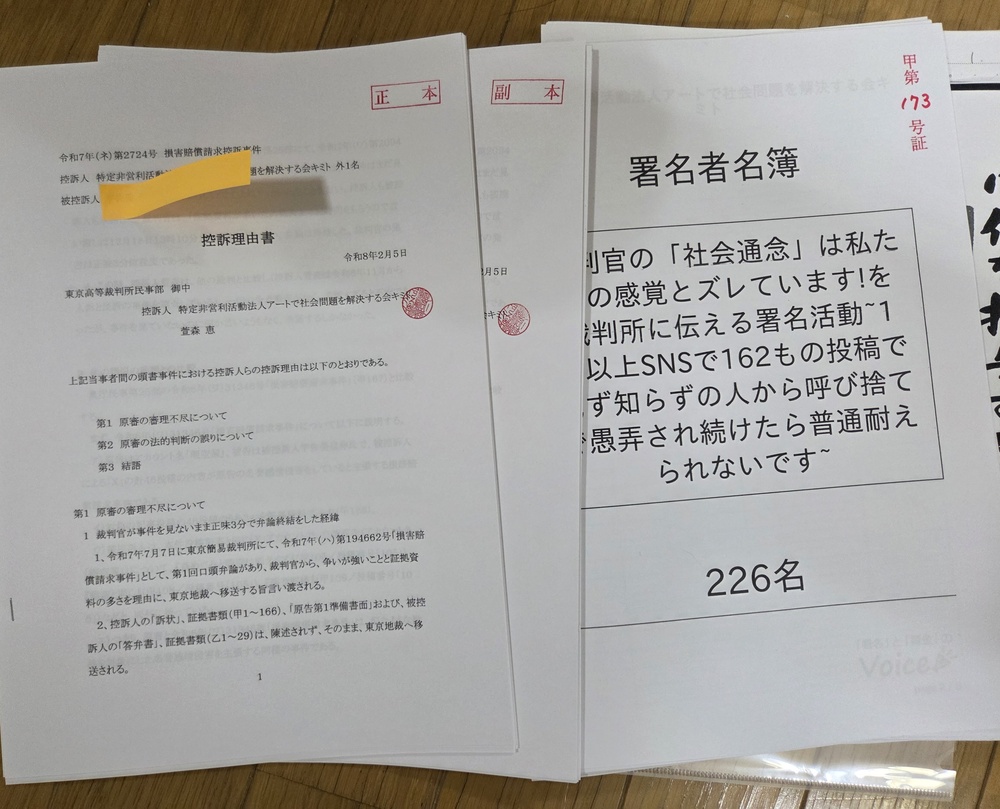 正 本
令和7年(ネ)第2724号 損害賠償請求控訴事件
控訴人 特定非営利活動 題を解決する会キミト 外1名
被控訴人
控訴理由書
令和8年2月5日
東京高等裁判所民事部 御中
控訴人 特定非営利活動法人アートで社会問題を解決する会キミ
萱森 惠
上記当事者間の頭書事件における控訴人らの控訴理由は以下のとおりである。
第1 原審の審理不尽について
第2 原審の法的判断の誤りについて
第3 結語
第1 原審の審理不尽について
1 裁判官が事件を見ないまま正味3分で弁論終結をした経緯
1、令和7年7月7日に東京簡易裁判所にて、令和7年(ハ)第194662号「損害賠
償請求事件」として、第1回口頭弁論があり、裁判官から、争いが強いことと証拠資
料の多さを理由に、東京地裁へ移送する旨言い渡される。
2、控訴人の「訴状」、証拠書類(甲1~166)、「原告第1準備書面」および、被控
訴人の「答弁書」、証拠書類(乙1~29)は、陳述されず、そのまま、東京地裁へ移
送される。
1
副 本
2月5日
甲第
173
号証
署名者名簿
判官の「社会通念」は私た
の感覚とズレています!を
裁判所に伝える署名活動~1
以上SNSで162もの投稿で
ず知らずの人から呼び捨て
で愚弄され続けたら普通耐え
られないです~
226名
Voice